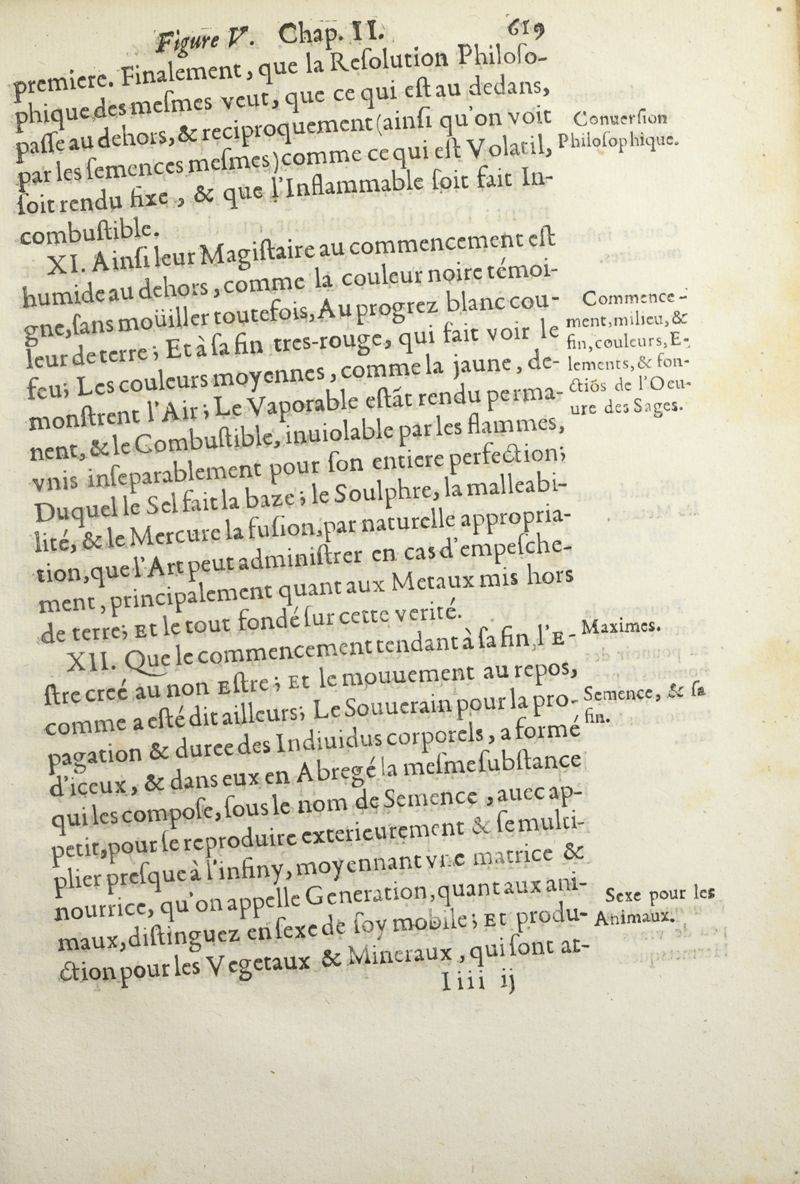 Figure V. Chap. II. 619
premiere. Finalement, que la Reſolution Philoſo-
phique des meſmes veut, que ce qui eſt au dedans,
paſſe au dehors, & reciproquement (ainſi qu'on voit
Conuerſion
par les ſemences meſmes) comme ce qui eſt Volatil,
Philoſophique.
ſoit rendu fixe, & que l'Inflammable ſoit fait In-
combuſtible.
XI. Ainſi leur Magiſtaire au commencement eſt
humide au dehors, comme la couleur noire témoi-
gne, ſans moüiller toutefois, Au progrez blanc cou-
Commence-
leur de terre; Et à ſa fin tres-rouge, qui fait voir le
ment, milieu, &
feu; Les couleurs moyennes, comme la jaune, de-
fin, couleurs, E-
monſtrent l'Air; Le Vaporable eſtāt rendu perma-
lements, & fon-
nent, & le Combuſtible, inuiolable par les flammes,
ctiōs de l'Oeu-
ure des Sages.
vnis inſeparablement pour ſon entiere perfection;
Duquel le Sel fait la baze; le Soulphre, la malleabi-
lité, & le Mercure la fuſion, par naturelle appropria-
tion, que l'Art peut adminiſtrer en cas d'empeſche-
ment, principalement quant aux Metaux mis hors
de terre; Et le tout fondé ſur cette verité.
XII. Que le commencement tendant à ſa fin, l'E-
Maximes.
ſtre creé au non Eſtre; Et le mouuement au repos,
comme a eſté dit ailleurs; Le Souuerain pour la pro-
Semence, & ſa
pagation & duree des Indiuidus corporels, a formé
fin.
d'iceux, & dans eux en Abregé la meſme ſubſtance
qui les compoſe, ſous le nom de Semence, auec ap-
petit, pour ſe reproduire exterieurement & ſe multi-
plier preſque à l'infiny, moyennant vne matrice &
nourrice, qu'on appelle Generation, quant aux ani-
Sexe pour les
maux, diſtinguez en ſexe de ſoy mobile; Et produ-
Animaux.
ction pour les Vegetaux & Mineraux, qui ſont at-
Iiii ij